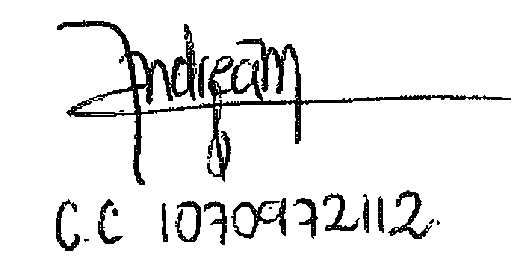 Andream
C.C 1070972112.